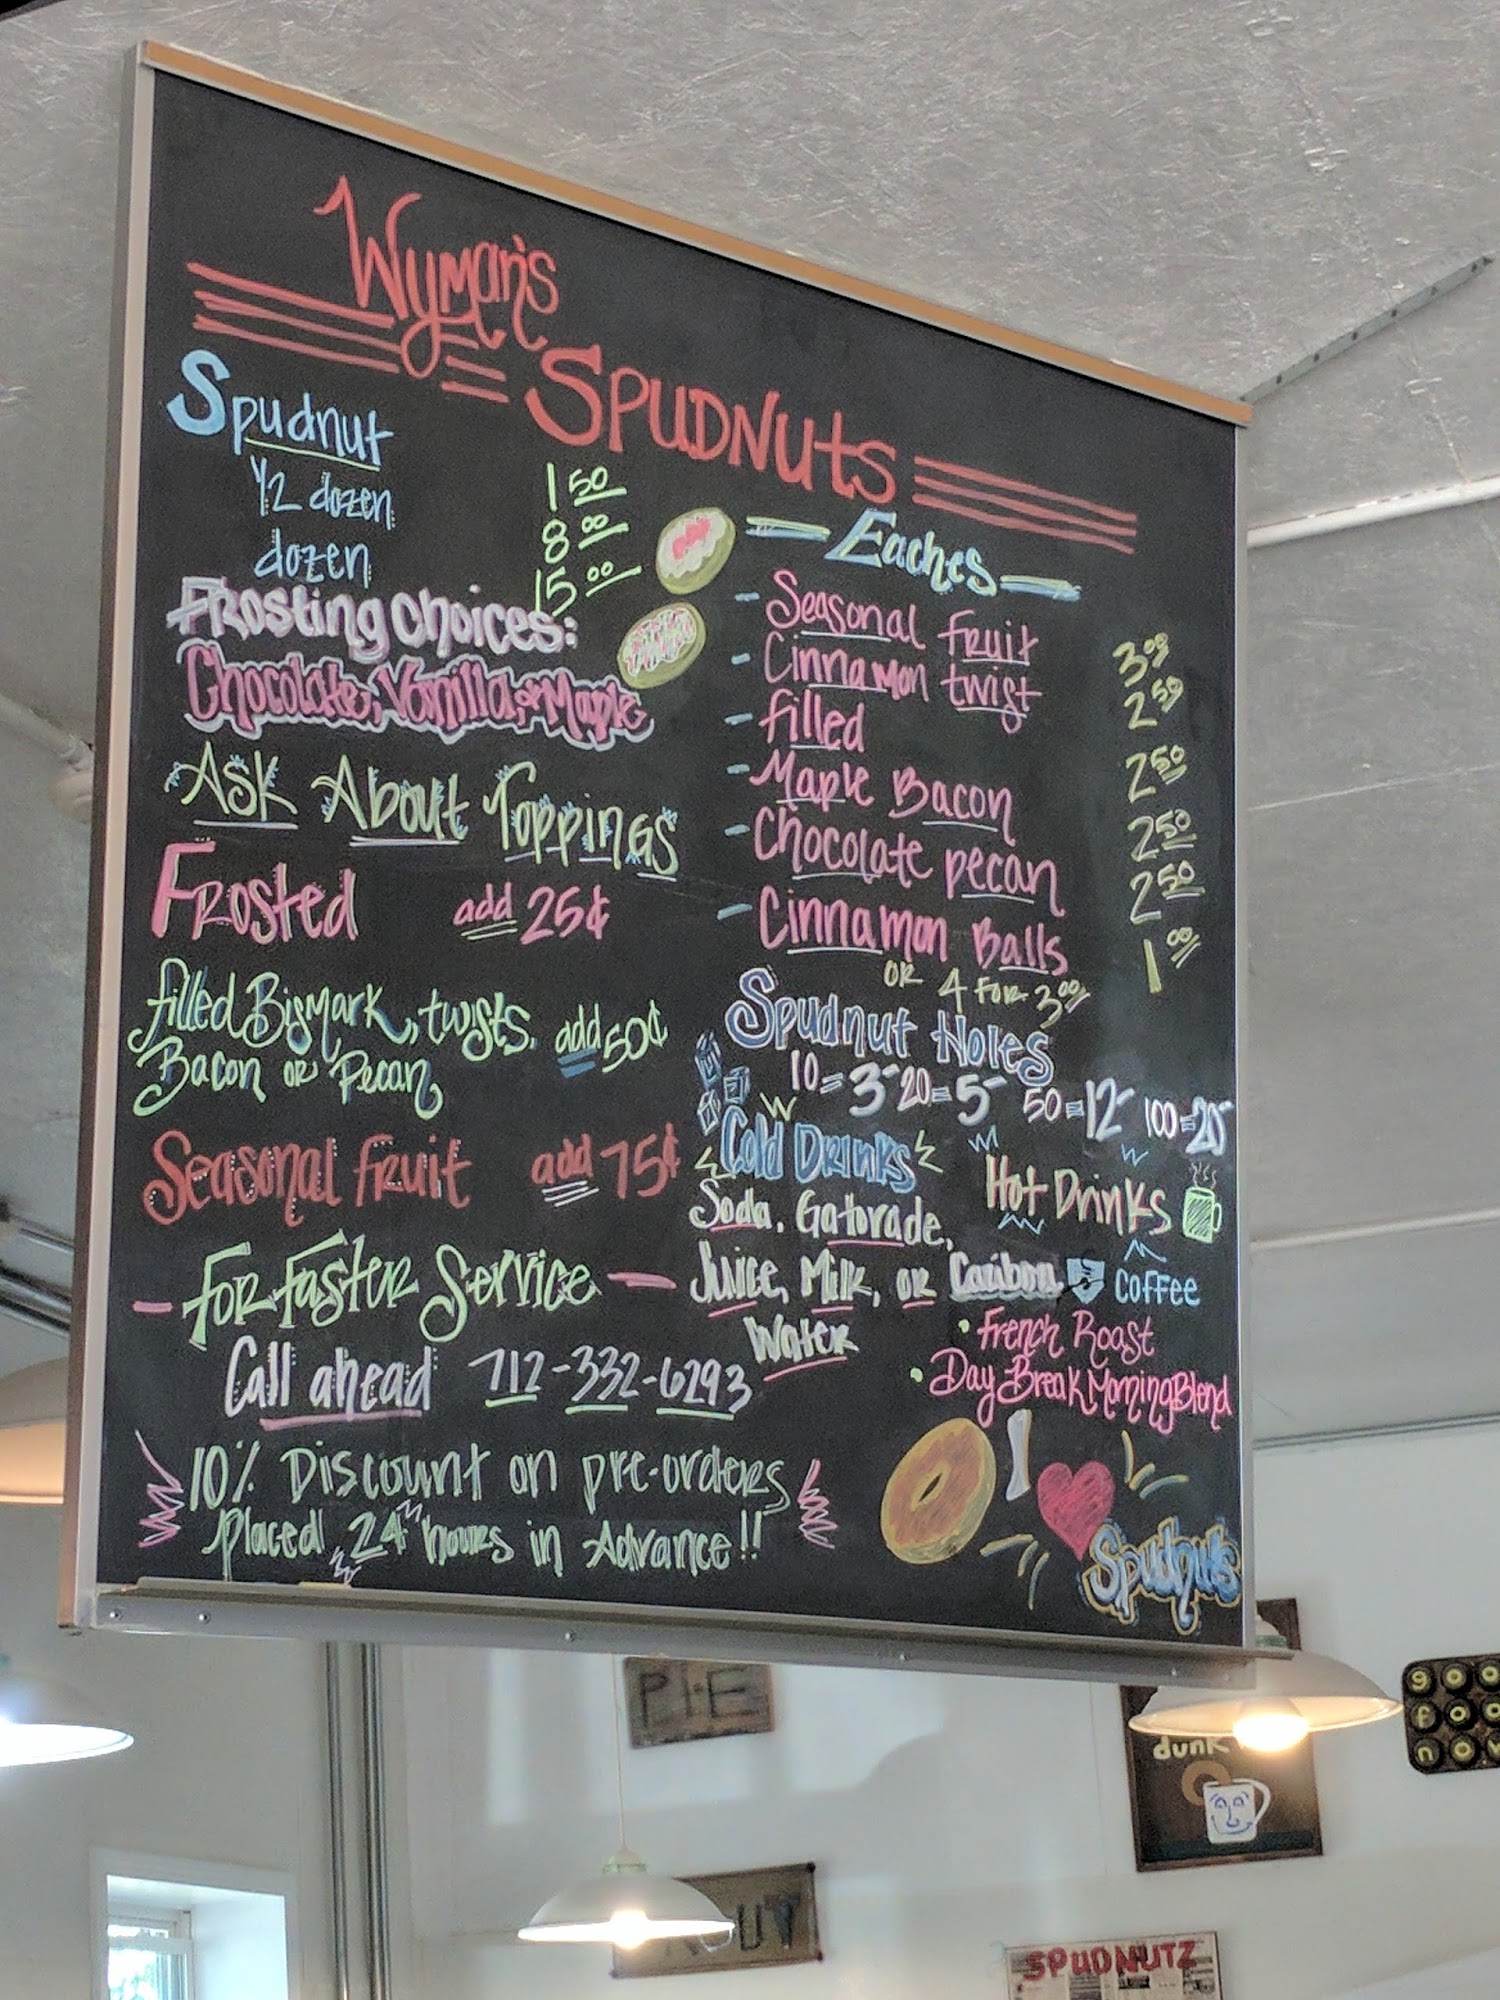 Wyman's
SPUDNUTS
Spudnut 1 50
1/2 dozen 8 00
dozen 15 00
FRosting choices:
Chocolate, Vanilla, & Maple
ASK ABOUT TOPPINGS
FRosted add 25¢
filled Bismark, twists, add 50¢
Bacon or Pecan
Seasonal fruit add 75¢
- For Faster Service -
Call ahead 712-332-6293
10% Discount on pre-orders
placed 24 hours in Advance!!
- Eaches -
- Seasonal fruit 3 00
- Cinnamon twist 2 50
- filled 2 50
- Maple Bacon 2 50
- Chocolate pecan 2 50
- Cinnamon Balls 1 00
OR 4 FOR 3 00
Spudnut Holes
10=3- 20=5- 50=12- 100=20-
Cold Drinks
Soda, Gatorade,
Juice, Milk, or
Water
Hot Drinks
Caribou COFFEE
• French Roast
• Day Break Morning Blend
I
Spudnuts
PIE
dunk
goo
foo
now
SPUDNUTZ